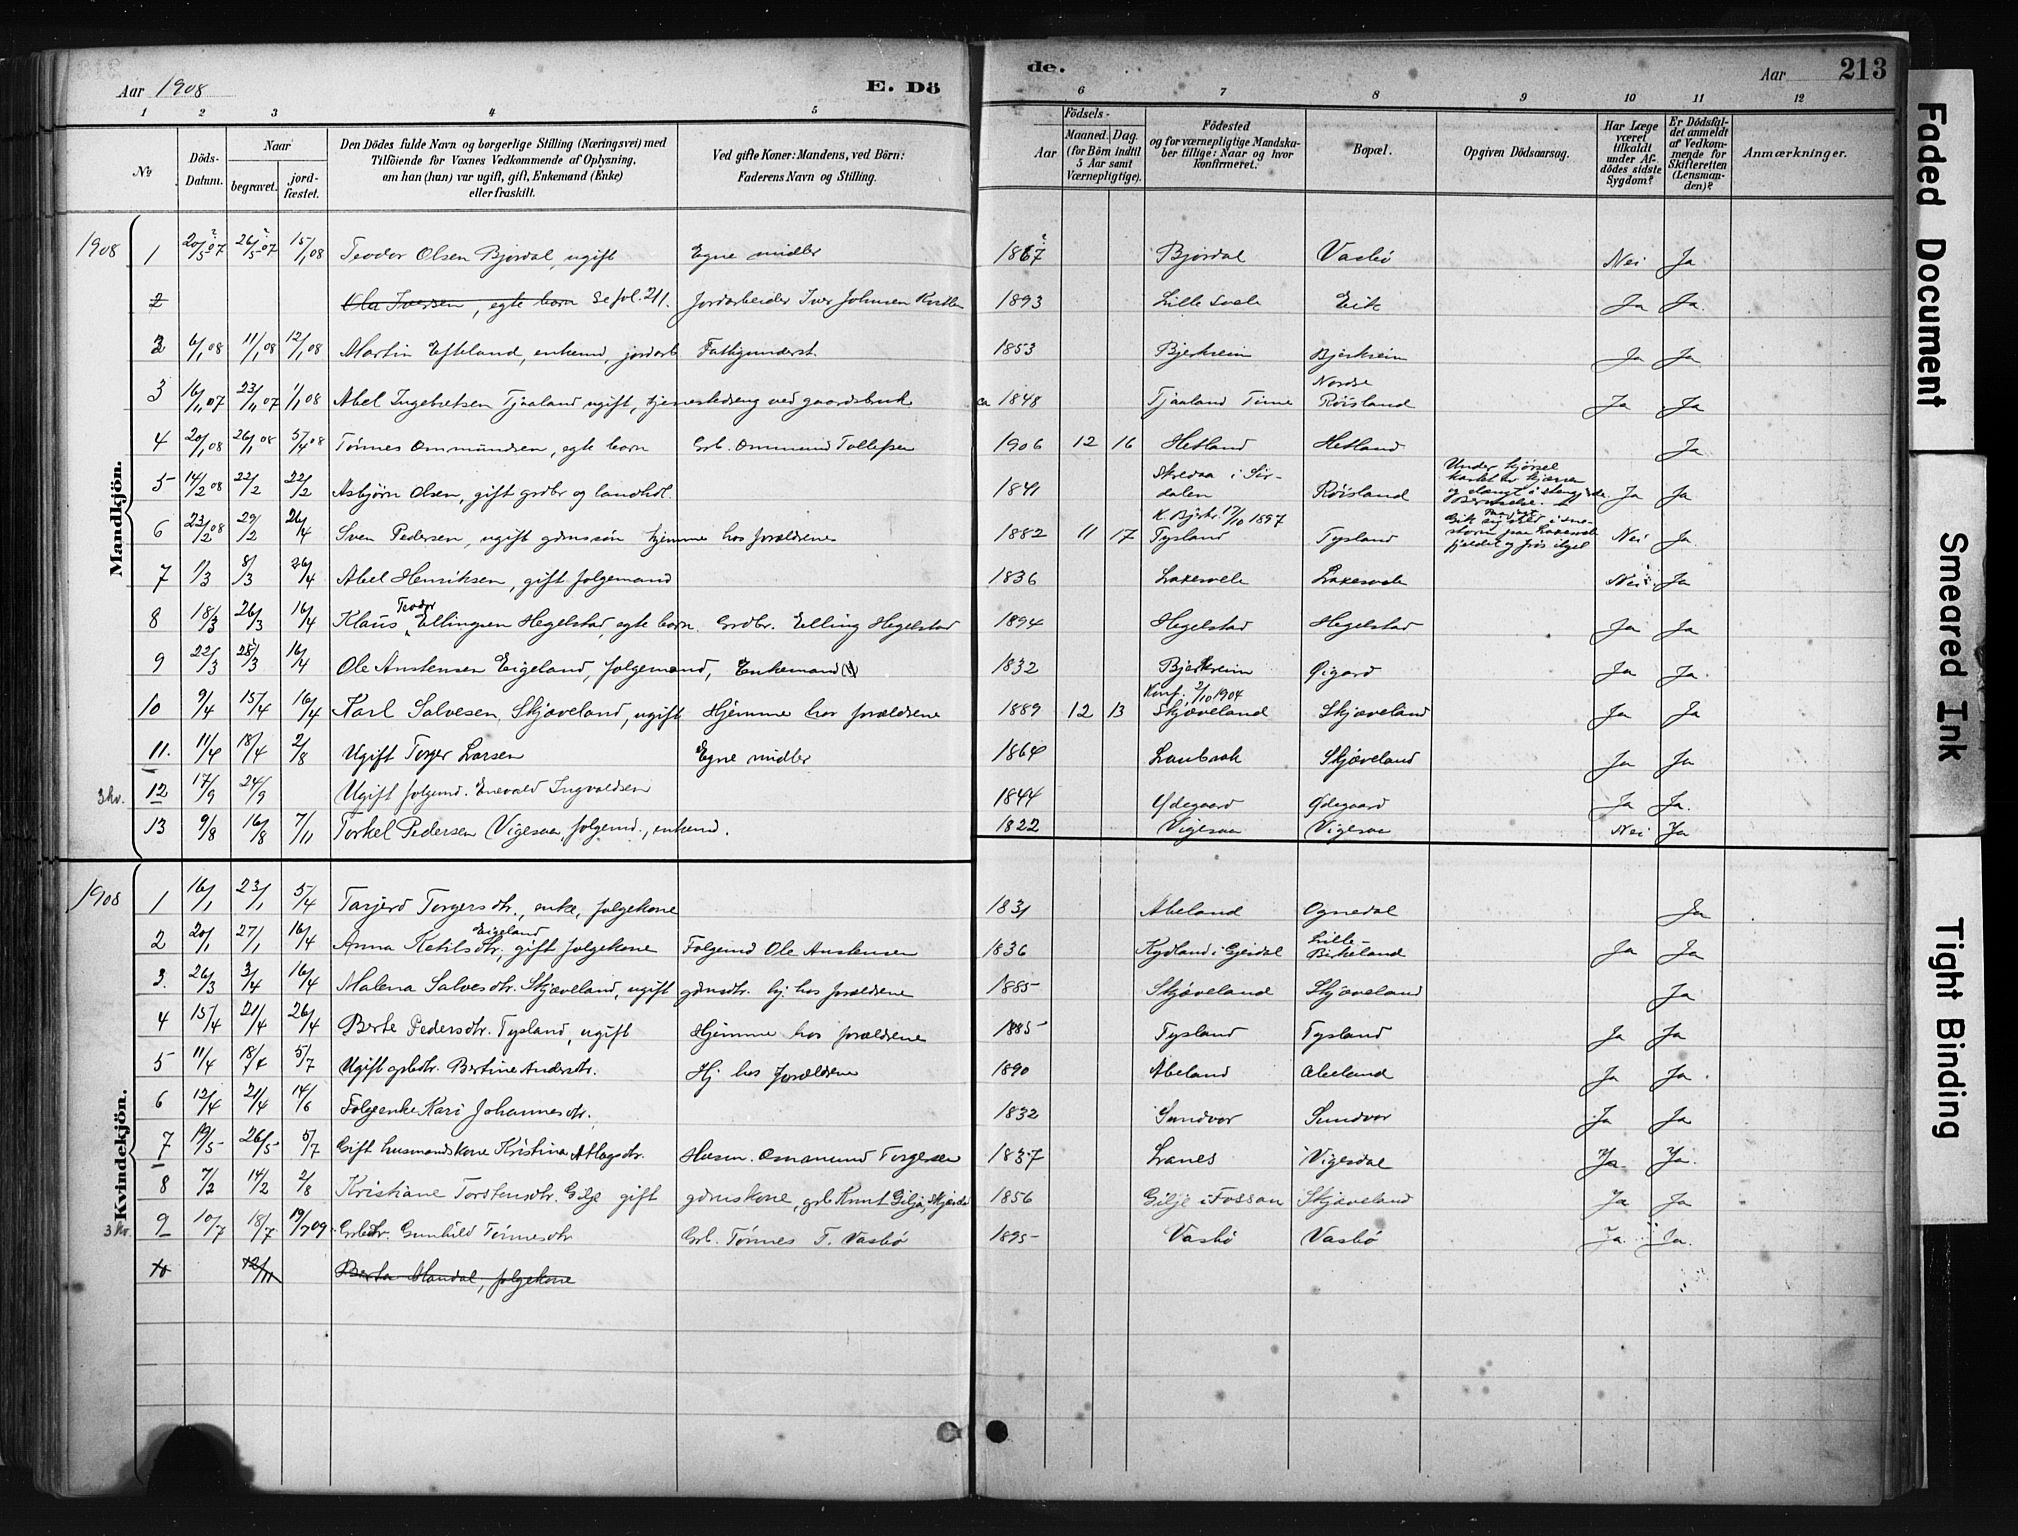 Aar 1908 E. Dö
de. Aar 213
1 2 3 4 5 6 7 8 9 10 11 12
No
Döds-Datum.
Naar
begravet. jordfæstet.
Den Dödes fulde Navn og borgerlige Stilling (Næringsvei) med
Tilföiende for Voxnes Vedkommende af Oplysning,
om han (hun) var ugift, gift, Enkemand (Enke)
eller fraskilt.
Ved gifte Koner: Mandens, ved Börn:
Faderens Navn og Stilling.
Födsels-
Aar Maaned. Dag.
(for Börn indtil
5 Aar samt
Værnepligtige).
Födested
og for værnepligtige Mandskaber tillige: Naar og hvor
konfirmeret.
Bopæl.
Opgiven Dödsaarsag.
Har Læge
været
tilkaldt
under Afdödes sidste
Sygdom?
Er Dödsfaldet anmeldt
af Vedkommende for
Skifteretten
(Lensmanden)?
Anmærkninger.
Mandkjön.
1908 1 20/5 07 ? 26/5 07 ? 15/1 08 Teodor Olsen Bjordal, ugift Egne midler 1867 ? Bjordal Vasbö Nei Ja
2 Ola Iversen, egte barn Se fol. 211. Jordarbeider Iver Johnsen 1893 Lille Svele Eik Ja Ja
2 6/1 08 11/1 08 12/1 08 Martin Efteland, enkemd, jordarb Fattigunderst. 1853 Bjerkreim Bjerkreim Ja Ja
3 16/11 07 23/11 07 1/1 08 Abel Ingebretsen Tjaaland ugift, tjenestedreng ved gaardsbruk ca 1848 Tjaaland Time Nordre Røisland Ja Ja
4 20/1 08 26/1 08 5/4 08 Tønnes Ommundsen, egte barn Grb. Ommund Tollefsen 1906 12 16 Hetland Hetland Ja
5 14/2 08 22/2 22/2 Asbjørn Olsen, gift grdbr og landhdl. 1841 Skredaa i Sirdalen Røisland Under kjørsel kastet av kjærren og slængt i stengjerde Ja Ja
6 23/2 08 29/2 26/4 Sven Pedersen, ugift gdmssøn hjemme hos forældrene 1882 11 17 K. Bjerkr. 17/10 1897 Tysland Tysland Gik sig vild i snestorm paa fjeldet og frøs ihjel Nei Ja
7 1/3 8/3 26/4 Abel Henriksen, gift folgemand 1836 Laxesvele Laxesvele Nei Ja
8 18/3 26/3 16/4 Klaus Teodor Ellingsen Hegelstad, egte barn Grdbr. Elling Hegelstad 1894 Hegelstad Hegelstad Ja Ja
9 22/3 28/3 16/4 Ole Anstensen Eigeland, folgemand, Enkemand 1832 Bjerkreim Øigard Ja Ja.
10 9/4 15/4 16/4 Karl Salvesen Skjæveland, ugift Hjemme hos forældrene 1889 12 13 Konf. 2/10 1904 Skjæveland Skjæveland Ja Ja
11. 11/4 18/4 2/8 Ugift Torger Larsen Egne midler 1864 Laubrak Skjæveland Ja Ja
3 kv. 12 17/9 24/9 Ugift folgmd. Enevald Ingvaldsen 1844 Ødegaard Ødegaard Ja Ja.
13 9/8 16/8 7/11 Torkel Pedersen Vigesaa, folgemd., enkemd. 1822 Vigesaa Vigesaa Nei Ja
Kvindekjön.
1908 1 16/1 23/1 5/4 Tarjerd Torgersdtr., enke, folgekone 1831 Abeland Ognedal Ja
2 20/1 27/1 16/4 Anna Ketilsdtr. Eigeland, gift folgekone Folgemd Ole Anstensen 1836 Kydland i Gjesdal Lille-Birkeland Ja Ja
3. 26/3 3/4 16/4 Malena Salvesdtr. Skjæveland, ugift gdmsdtr. hj. hos forældrene 1885 Skjæveland Skjæveland Ja
4 15/4 21/4 26/4 Berte Pedersdtr. Tysland, ugift Hjemme hos forældrene 1885 Tysland Tysland Ja Ja
5 11/4 18/4 5/7 Ugift grbdtr. Bertine Andersdtr. Hj hos forældrene 1890 Abeland Abeland Ja Ja.
6 12/4 21/4 14/6 Folgenke Kari Johannesdtr. 1832 Sundvor Sundvor Ja Ja
7 19/5 26/5 5/7 Gift husmandskone Kristina Atlagsdtr. Husm. Ommund Torgersen 1837 Lanes Vigesdal Ja Ja.
8 7/2 14/2 2/8 Kristiane Torstensdtr. Gilje gift gdmskone, grb Knut Gilja, Skjævela 1856 Gilje i Fossan Skjæveland Ja Ja
3 kv. 9 10/7 18/7 19/7 09 Grbdtr. Gunhild Tønnesdtr Grb. Tønnes T. Vasbø 1895 Vasbø Vasbø Ja. Ja.
10 12/11 Berta Mandal, folgekone
Faded Document
Smeared Ink
Tight Binding